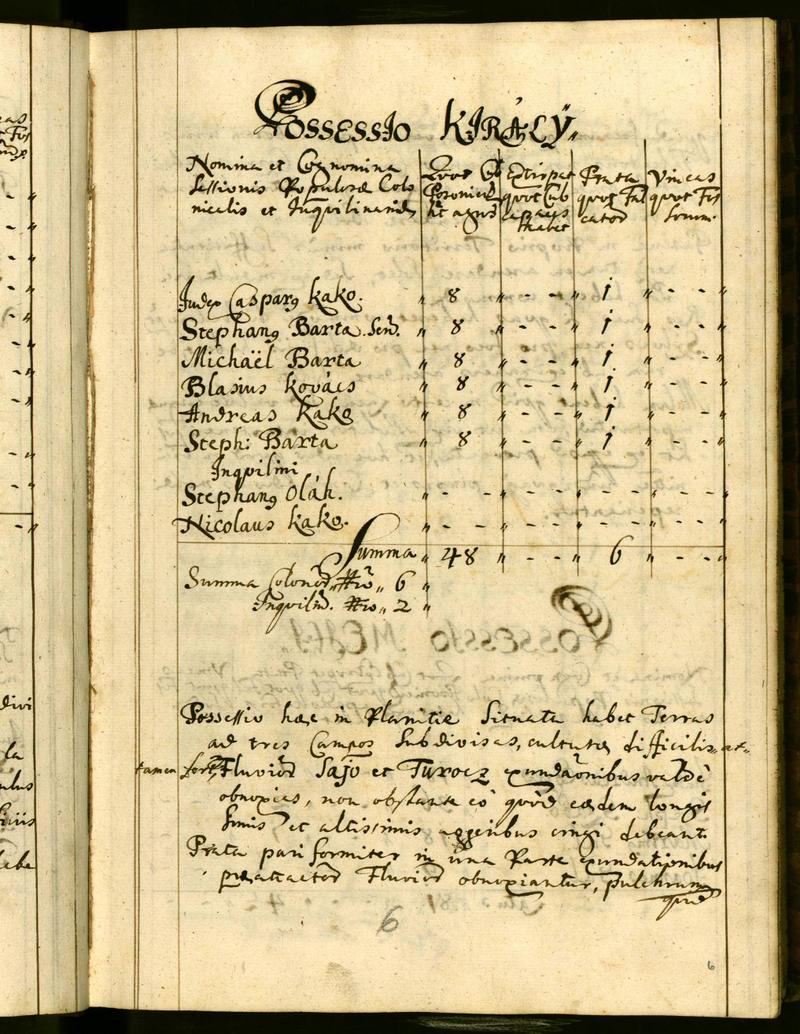 Possessio KIRÁLŸ,
Nomina et Cognomina
Sessionis Populosæ Colo
nicalis et Inquilinaris
Quot Cub
Posonien
sit agros
Extirpat
quot Cub
capaces
habet
Prata
quot Fal
cator
Vineas
quot Fos
sorum
Judex Caspar9 Kako. „ 8 „ - - „ 1 „ - - „
Stephan9 Barta. Sen. „ 8 „ - - „ 1 „ - - „
Michaël Barta „ 8 „ - - „ 1 „ - - „
Blasius Kovács „ 8 „ - - „ 1 „ - - „
Andreas Kako „ 8 „ - - „ 1 „ - - „
Steph: Barta „ 8 „ - - „ 1 „ - - „
Inquilini
Stephan9 Oláh. „ - - „ - - „ - - „ - - „
Nicolaus Kako. „ - - „ - - „ - - „ - - „
Summa „ 48 „ - - „ 6 „ - - „
Summa Colonor „ Nro „ 6 „
Inquilin. Nro „ 2 „
Possessio hæc in Planitie Situata habet Terras
ad tres Campos Subdivisas, cultura difficiles, at-
tamen fert. Fluvior Sajo et Turocz exundaõnibus valdè
obnoxias, non obstante eò quòd eædem longis
simis et altissimis aggeribus cingi debeant.
Prata pariformiter in una Parte exundationibus
præattactor Fluvior obnoxiantur, pulchrum
quid
6
6